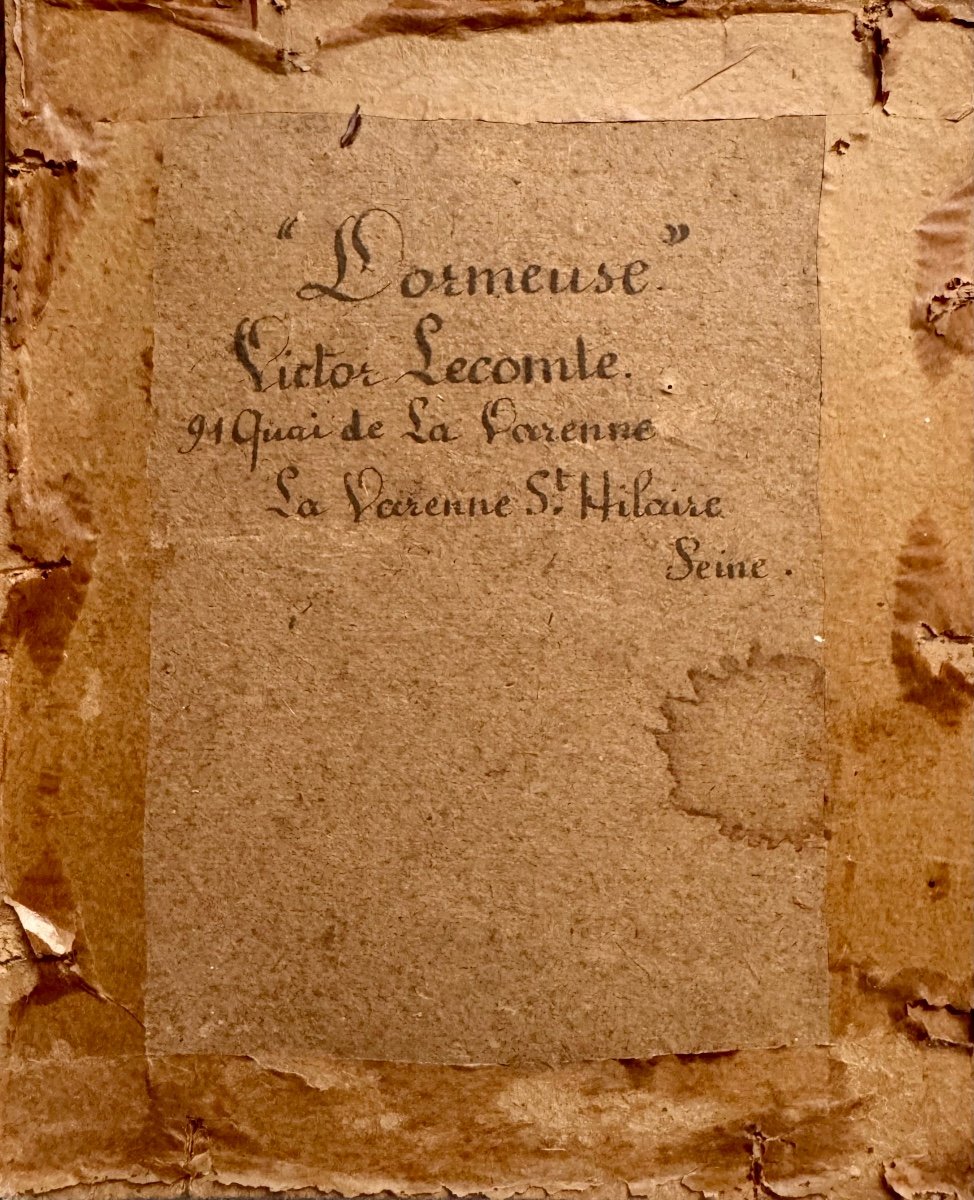 "Dormeuse."
Victor Lecomte.
91 Quai de La Varenne
La Varenne St. Hilaire
Seine.